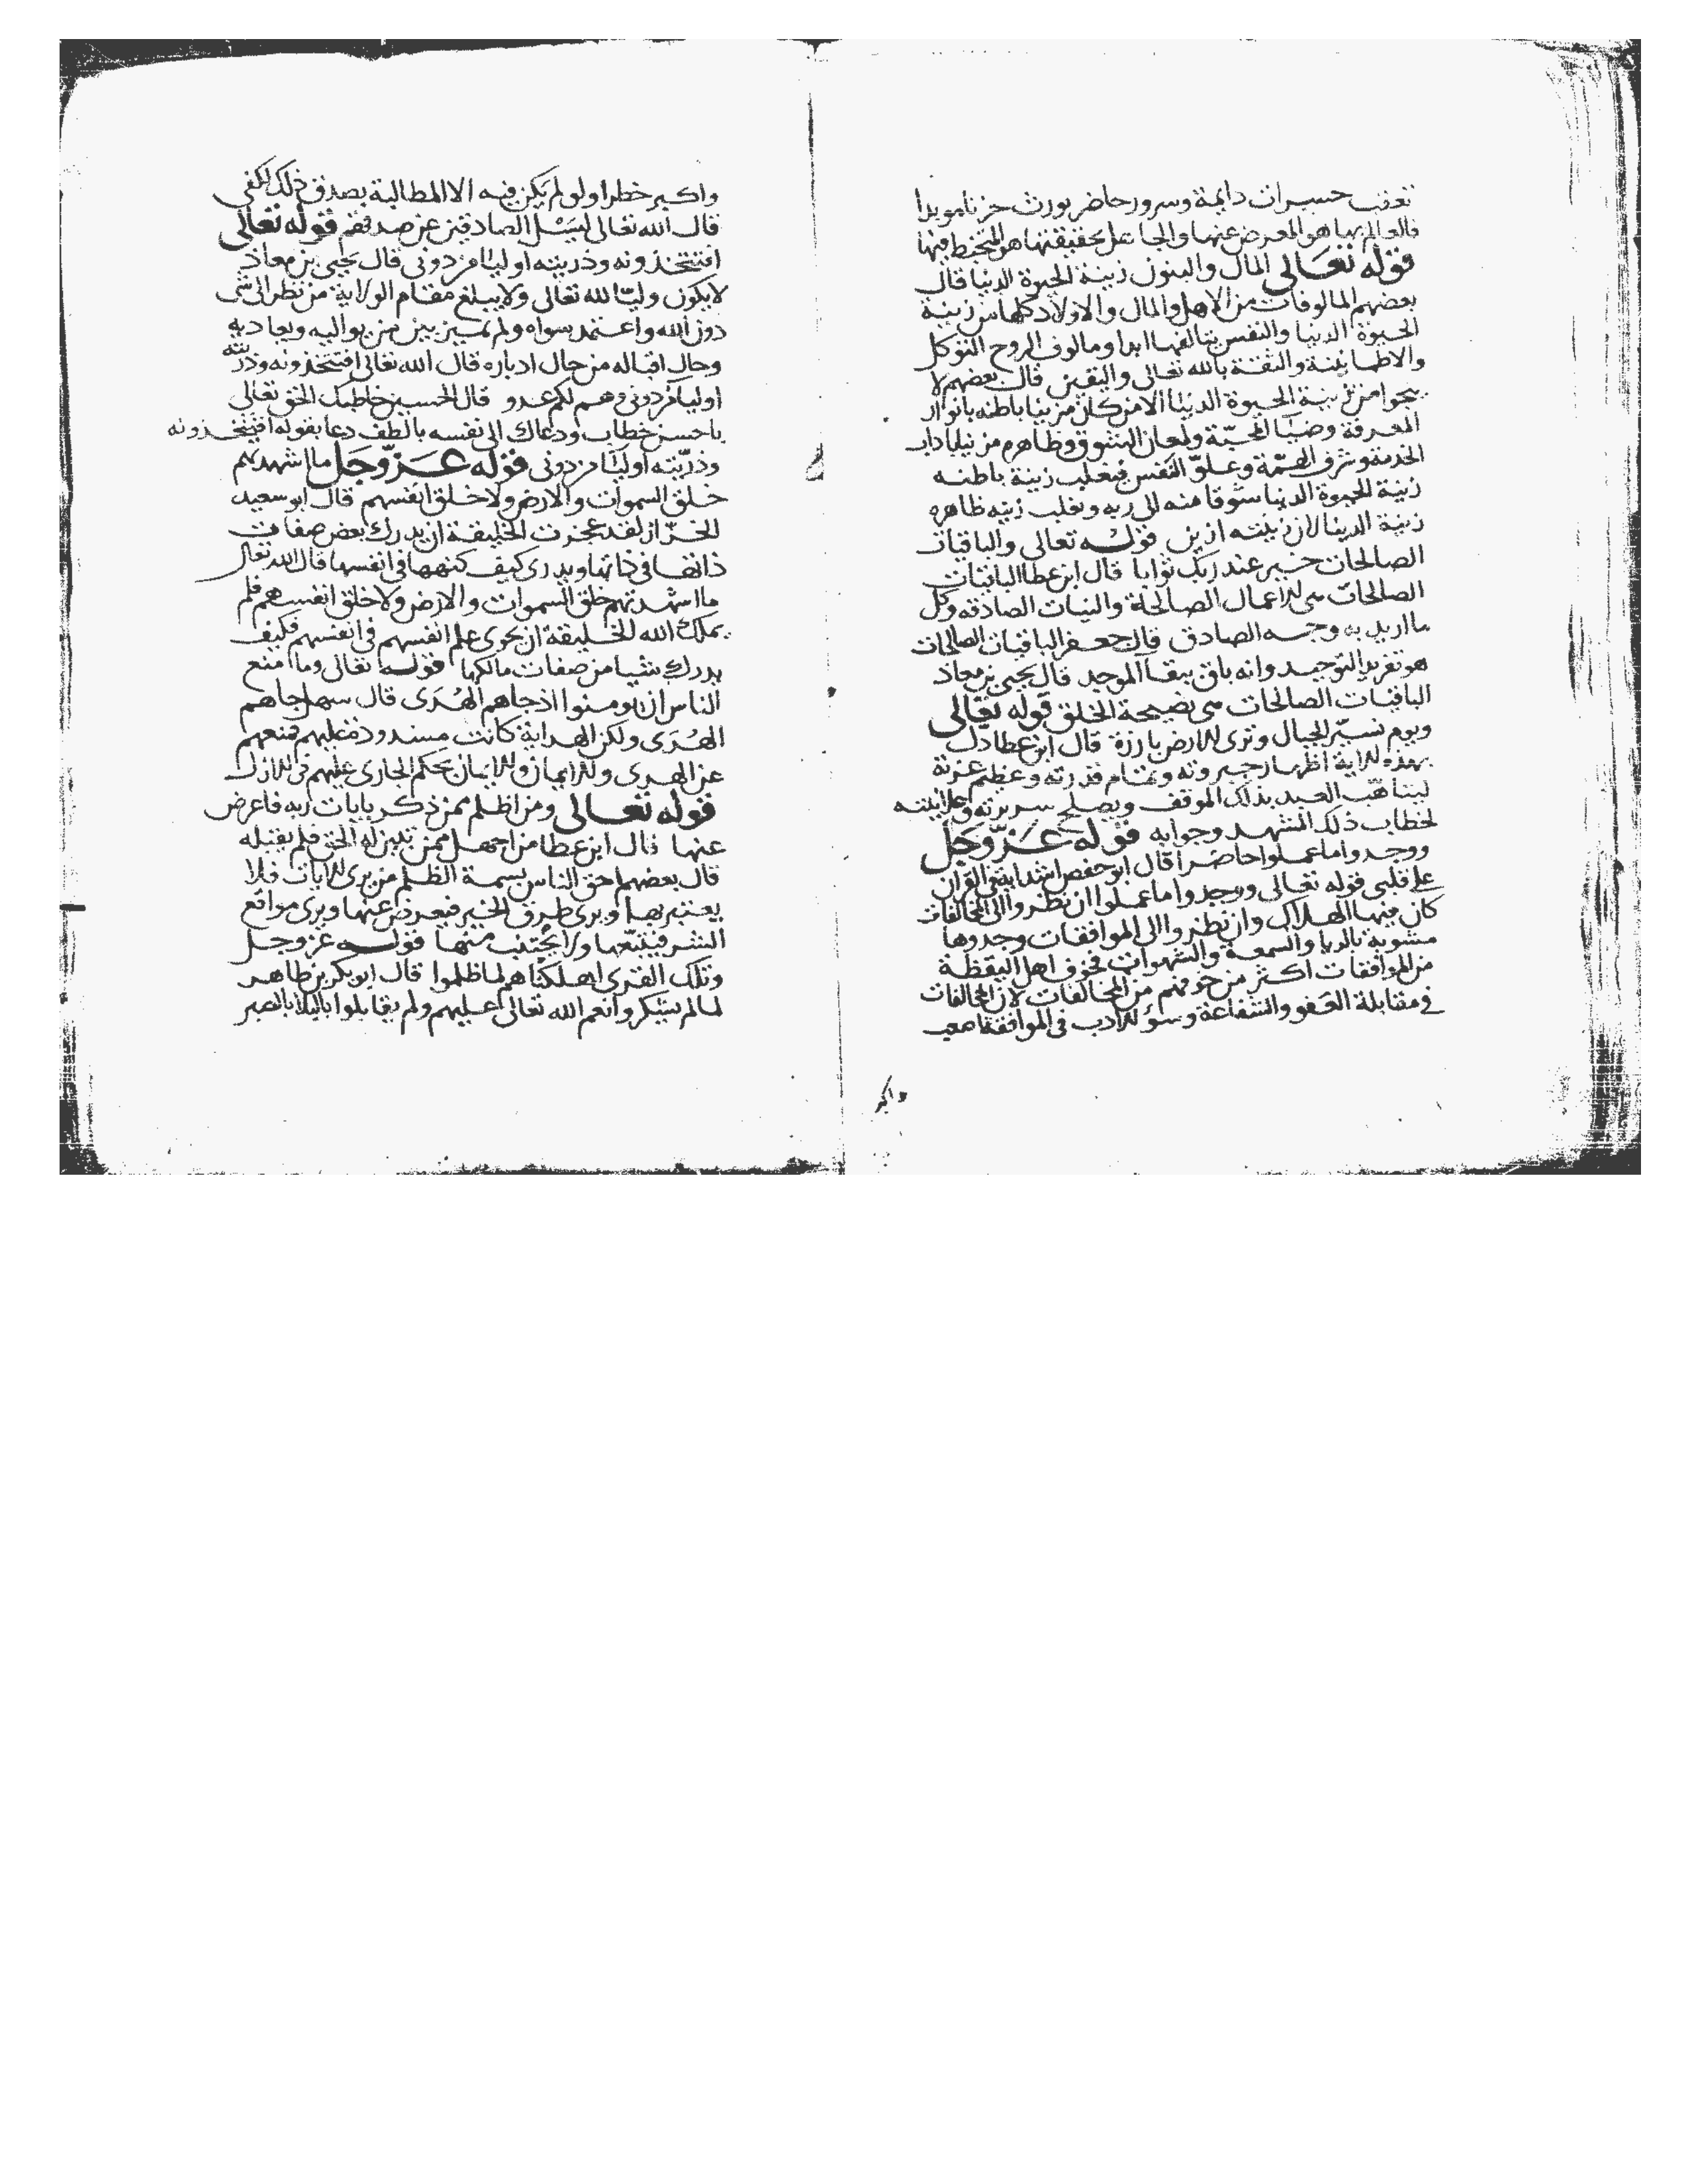 تعقب حسرات دايمة وسرور حاضر يورث حزنا موبدا
فالعالم بها هو المعرض عنها والجاهل بحقيقتها هو المتخبط فيها
قوله تعالى المال والبنون زينة الحيوة الدنيا قال
بعضهم المالوفات من الاهل والمال والاولاد كلها من زينة
الحيوة الدنيا والنفس يتالفها ابدا ومالوف الروح التوكل
والاطمانينة والثقة بالله تعالى واليقين قال بعضهم لا
ينجوا من زينة الحيوة الدنيا الا من كان مزينا باطنه بانوار
المعرفة وضيا المحبة ولمعان الشوق وظاهره مزينا باداب
الخدمة وشرف الهمة وعلو النفس فيغلب زينة باطنه
زينة الحيوة الدنيا شوقا منه الى ربه وتغلب زينة ظاهره
زينة الدنيا لان زينته ازين قوله تعالى والباقيات
الصالحات خير عند ربك ثوابا قال ابن عطا الباقيات
الصالحات هي الاعمال الصالحة والنيات الصادقه وكل
ما اريد به وجه الصادق قال جعفر الباقيات الصالحات
هو تفريد التوحيد وانه باق ببقا الموحد قال يحيى بن معاذ
الباقيات الصالحات هي نصيحة الخلق قوله تعالى
ويوم نسير الجبال وترى الارض بارزة قال ابن عطا دل
بهذه الاية اظهار جبروته وتمام قدرته وعظيم عزته
ليتاهب العبد بذلك الموقف ويصلح سريرته وعلانيته
لخطاب ذلك الشهد وجوابه قوله عز وجل
ووجدوا ما عملوا حاضرا قال ابو حفص اشد اية في القران
على قلبى قوله تعالى ووجدوا ما عملوا ان نظروا الى المخالفات
كان فيها الهلاك وان نظروا الى الموافقات وجدوها
مشوبة بالريا والسمعة والشهوات فخوف اهل اليقظة
من الموافقات اكثر من خوفهم من المخالفات لان المخالفات
في مقابلة العفو والشفاعة وسؤ الادب في الموافقة اصعب
واكبر
واكبر خطرا ولو لم يكن فيه الا المطالبة بصدق ذلك لكفى
قال الله تعالى ليسل الصادقين عن صدقهم قوله تعالى
افتتخذونه وذريته اوليا من دونى قال يحيى بن معاذ
لا يكون وليا لله تعالى ولا يبلغ مقام الولاية من نظر الى شي
دون الله واعتمد سواه ولم يميز بين من يواليه ويعاديه
وحال اقباله من حال ادباره قال الله تعالى افتتخذونه وذريته
اوليا من دونى وهم لكم عدو قال الحسين خاطبك الحق تعالى
باحسن خطاب ودعاك الى نفسه بالطف دعا بقوله افتتخذونه
وذريته اوليا من دونى قوله عز وجل ما اشهدتهم
خلق السموات والارض ولا خلق انفسهم قال ابو سعيد
الخراز لقد عجزت الخليقة ان يدرك بعض صفات
ذاتها في ذاتها ويدرى كيف كنهها في انفسها قال الله تعالى
ما اشهدتهم خلق السموات والارض ولا خلق انفسهم فلم
يملك الله الخليقة ان يحوى علم انفسهم في انفسهم فكيف
يدرك شيا من صفات مالكها قوله تعالى وما منع
الناس ان يومنوا اذ جاهم الهدى قال سهل جاهم
الهدى ولكن الهداية كانت مسدودة عليهم فمنعهم
عن الهدى والايمان والايمان بحكم الجارى عليهم في الازل
قوله تعالى ومن اظلم ممن ذكر بايات ربه فاعرض
عنها قال ابن عطا من اجهل ممن تبين له الحق فلم يقبله
قال بعضهم احق الناس بسمة الظلم من يرى الايات فلا
يعتبر بها ويرى طرق الخير فيعرض عنها ويرى مواقع
الشر فيتبعها ولا يجتنب منها قوله عز وجل
وتلك القرى اهلكناهم لما ظلموا قال ابو بكر بن طاهر
لما لم يشكروا نعم الله تعالى عليهم ولم يقابلوا البلا بالصبر